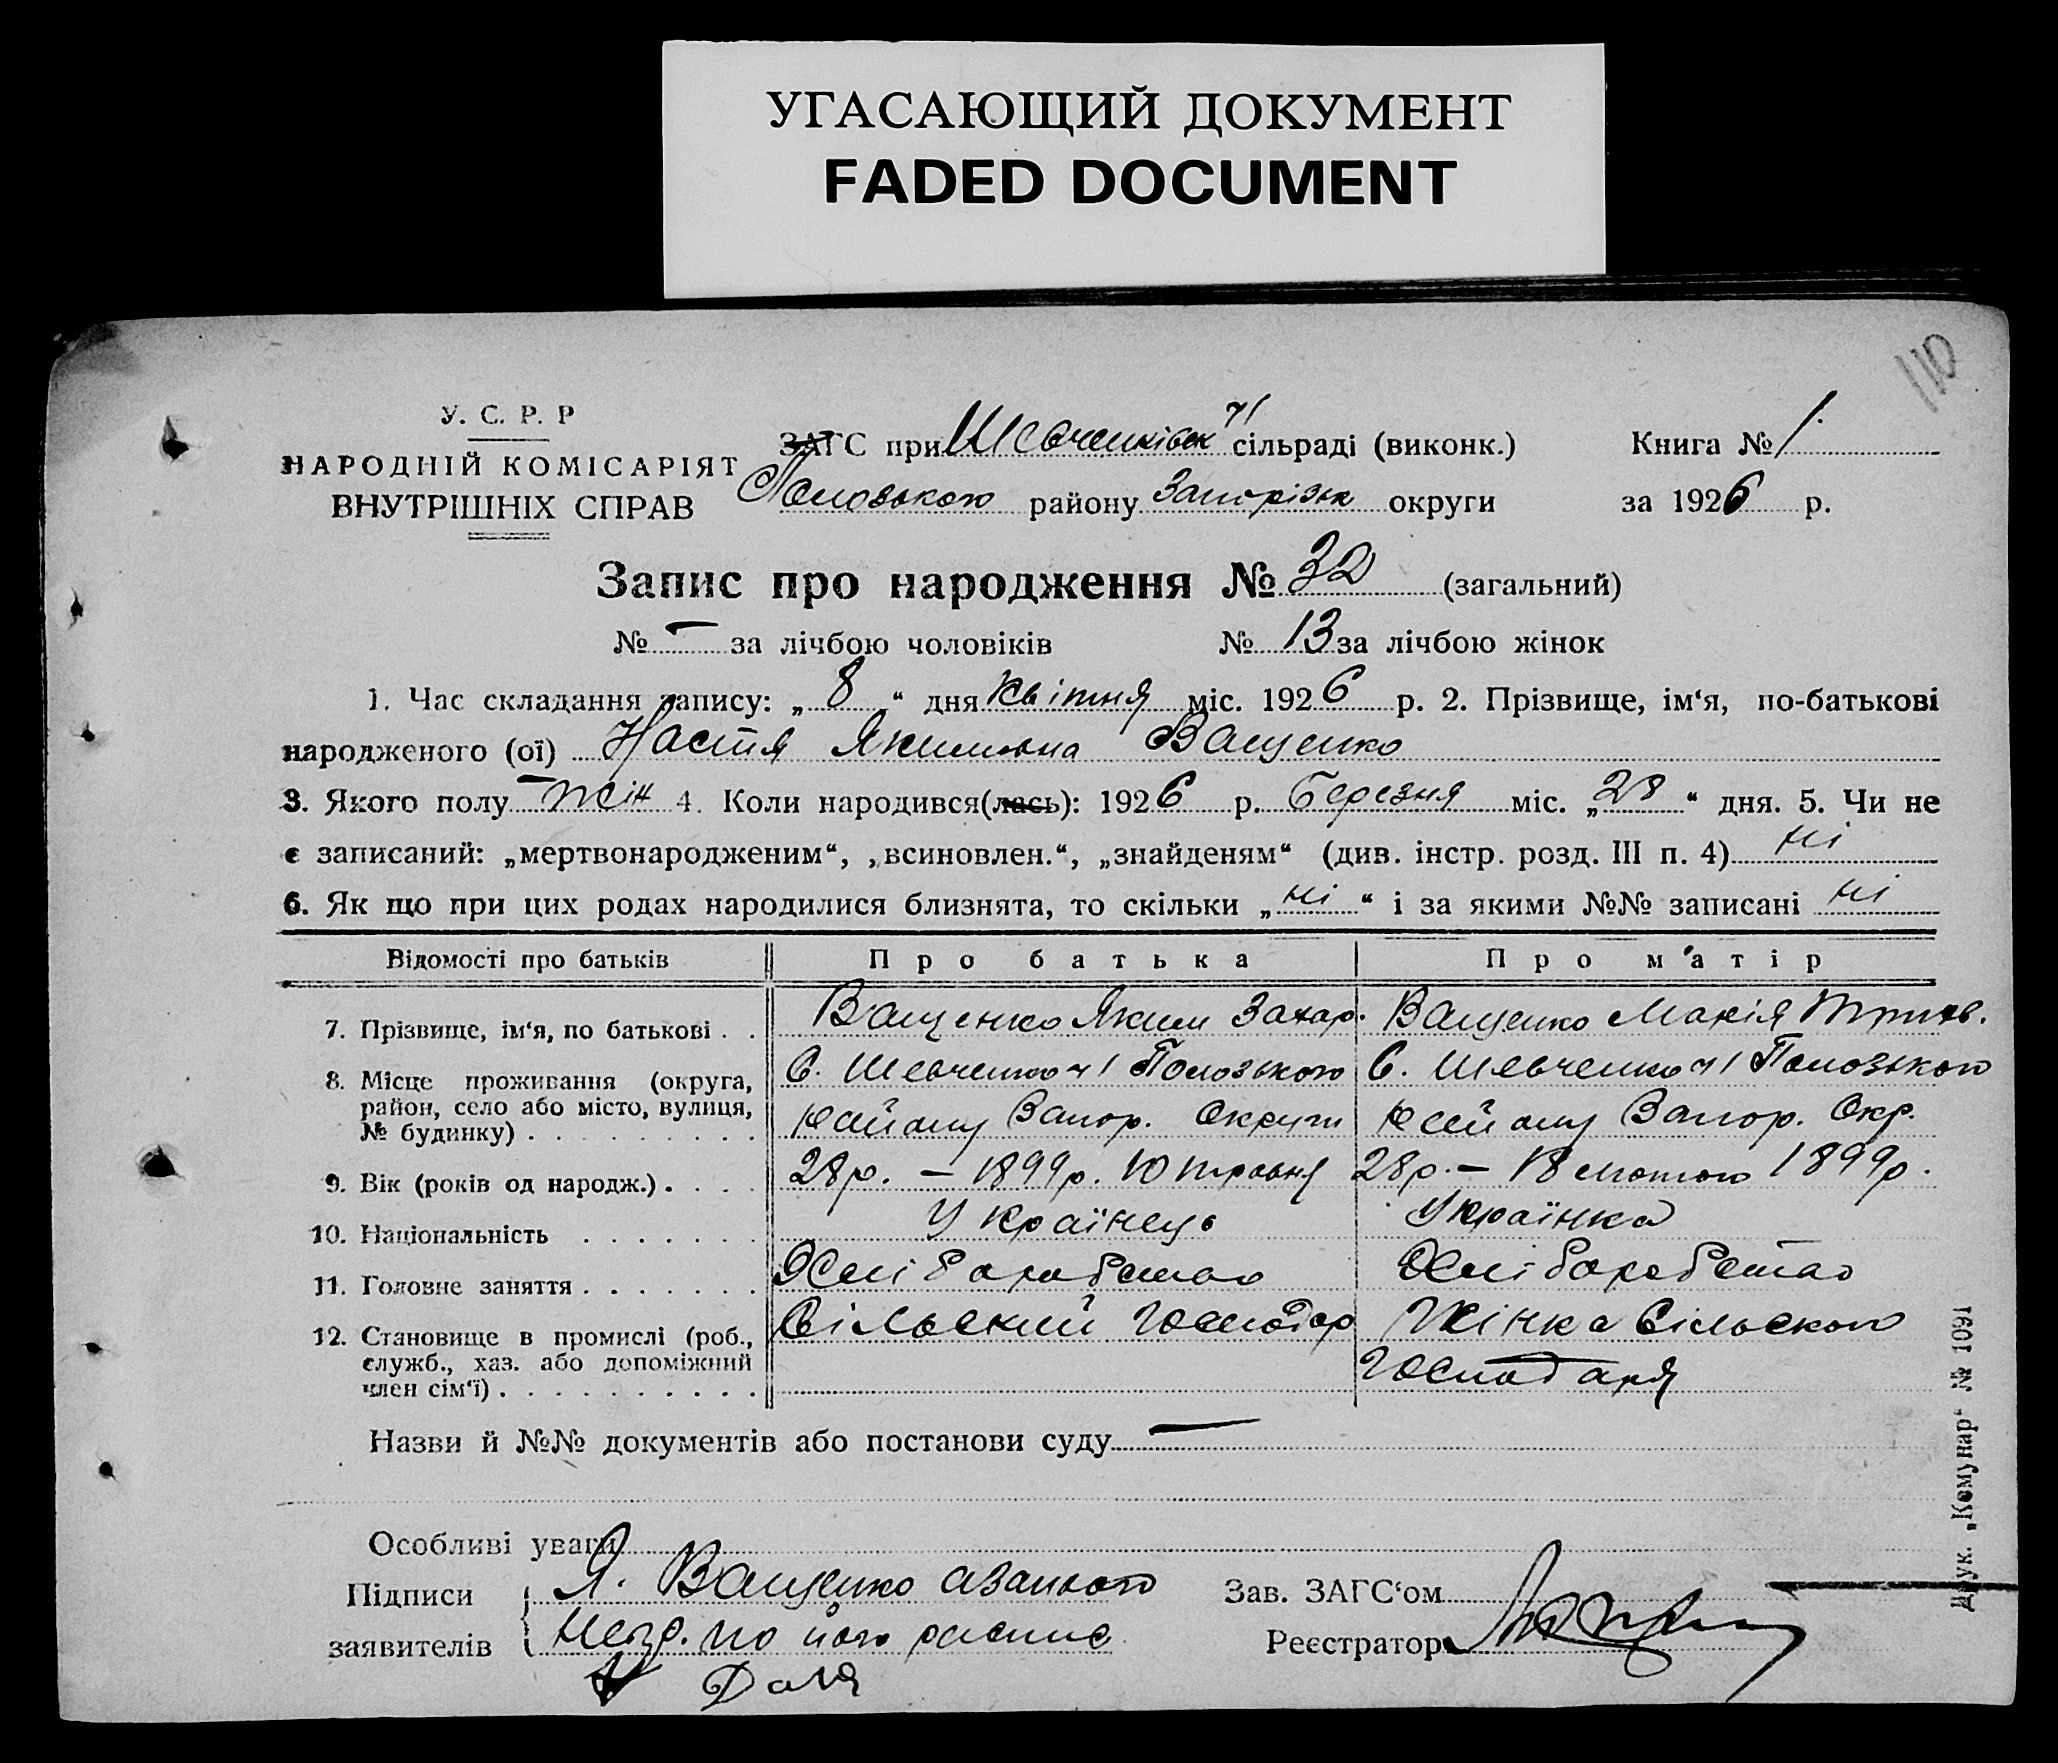 УГАСАЮЩИЙ ДОКУМЕНТ
FADED DOCUMENT
110
У. С. Р. Р
НАРОДНІЙ КОМІСАРІЯТ
ВНУТРІШНІХ СПРАВ
ЗАГС при Шевченківск сільраді (виконк.) Книга № 1.
Полозького району Запорізьк округи за 1926 р.
Запис про народження № 32 (загальний)
№ — за лічбою чоловіків № 13 за лічбою жінок
1. Час складання запису: „8“ дня квітня міс. 1926 р. 2. Прізвище, ім‘я, по-батькові
народженого (ої) Настя Якимовна Ващенко
3. Якого полу жін 4. Коли народився(лась): 1926 р. березня міс. „28“ дня. 5. Чи не
є записаний: „мертвонародженим“, „всиновлен.“, „знайденям“ (див. інстр. розд. III п. 4) ні
6. Як що при цих родах народилися близнята, то скільки „ні“ і за якими №№ записані ні
Відомості про батьків Про батька Про м‘атір
7. Прізвище, ім‘я, по батькові . . Ващенко Яким Захар. Ващенко Марія
8. Місце проживання (округа, район, село або місто, вулиця, № будинку) . . . . . . . . .
С. Шевченков Полозького району Запор. Округи
С. Шевченков Полозького району Запор. Окр.
9. Вік (років од народж.) . . . . 28р. — 1899р. 10 травня 28р. — 18 лютого 1899р.
10. Національність . . . . . . . Українець Українка
11. Головне заняття . . . . . . . Хліборобство Хліборобство
12. Становище в промислі (роб., служб., хаз. або допоміжний член сім‘ї) . . . . . . . . . . .
Сільский Господар
Жінка Сільского Господаря
Назви й №№ документів або постанови суду —
Особливі уваги
Підписи заявителів { Я. Ващенко а за його
по його распис
Доля
Зав. ЗАГС‘ом
Реєстратор
Друк. „Комунар“ № 1091